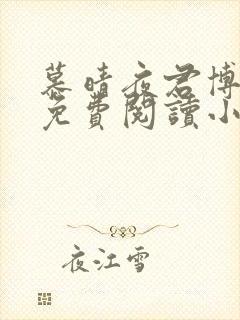 慕晴夜君博
免費閱讀小
夜江雪